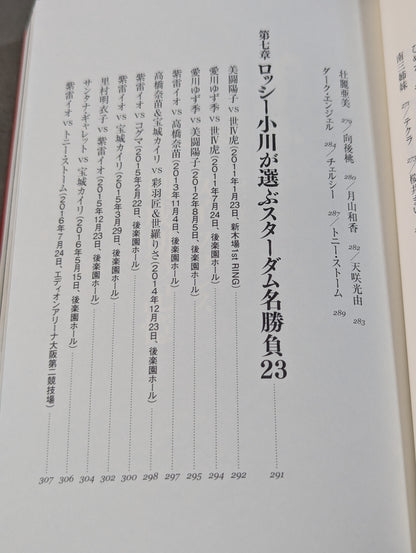 南三姉妹
テクラ
壮麗亜美 279／向後桃 280／月山和香 282／天咲光由 283
ダーク・エンジェル 284／チェルシー 287／トニー・ストーム 289
第七章 ロッシー小川が選ぶスターダム名勝負23 291
美闘陽子 vs 世Ⅳ虎（2011年1月23日、新木場1st RING） 292
愛川ゆず季 vs 世Ⅳ虎（2011年7月24日、後楽園ホール） 294
愛川ゆず季 vs 美闘陽子（2012年8月5日、後楽園ホール） 295
紫雷イオ vs 高橋奈苗（2013年11月4日、後楽園ホール） 297
高橋奈苗&宝城カイリ vs 彩羽匠&世羅りさ（2014年12月23日、後楽園ホール） 298
紫雷イオ vs コグマ（2015年2月22日、後楽園ホール） 300
紫雷イオ vs 宝城カイリ（2015年3月29日、後楽園ホール） 302
里村明衣子 vs 紫雷イオ（2015年12月23日、後楽園ホール） 304
サンタナ・ギャレット vs 宝城カイリ（2016年5月15日、後楽園ホール） 306
紫雷イオ vs トニー・ストーム（2016年7月24日、エディオンアリーナ大阪第二競技場） 307